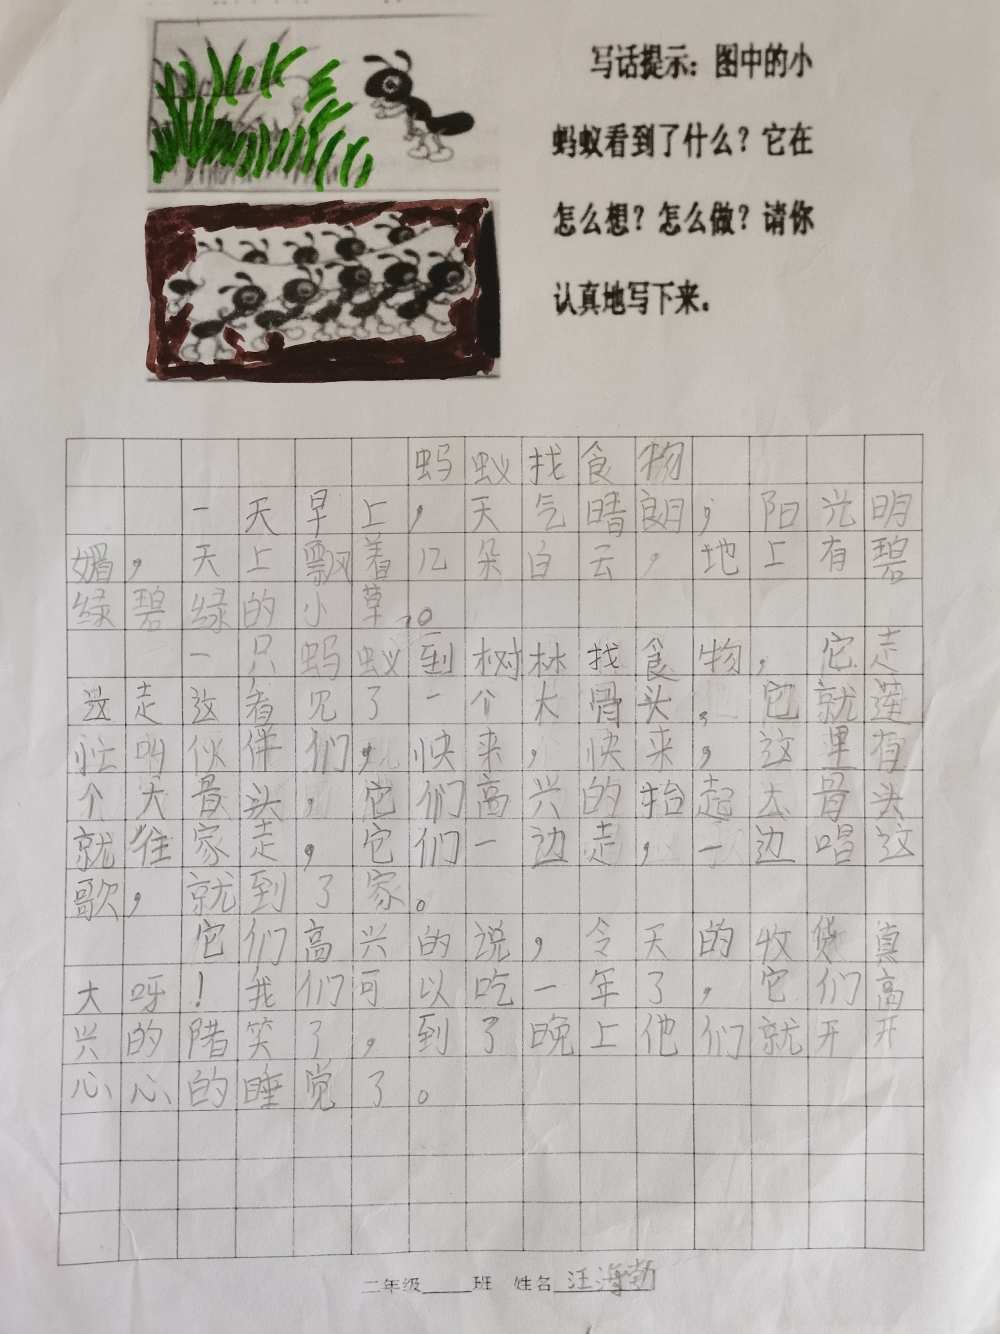 写话提示：图中的小
蚂蚁看到了什么？它在
怎么想？怎么做？请你
认真地写下来。
蚂蚁找食物
一天早上，天气晴朗，阳光明
媚，天上飘着几朵白云，地上有碧
绿碧绿的小草。
一只蚂蚁到树林找食物，它走
这走这看见了一个大骨头，它就莲
忙叫伙伴们，快来，快来，这里有
个大骨头，它们高兴的抬起大骨头
就往家走，它们一边走，一边唱这
歌，就到了家。
它们高兴的说，今天的收货真
大呀！我们可以吃一年了，它们高
兴的笑了，到了晚上他们就开开
心心的睡觉了。
二年级____班 姓名 汪海勃